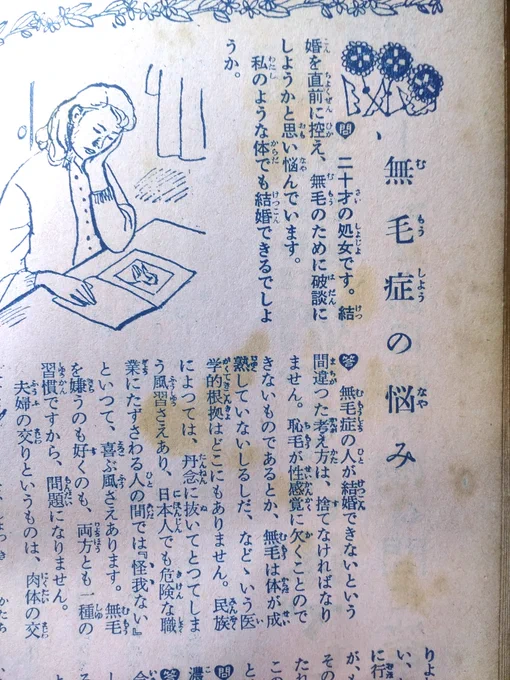 無毛症の悩み
問 二十才の処女です。結
婚を直前に控え、無毛のために破談に
しようかと思い悩んでいます。
私のような体でも結婚できるでしよ
うか。
答 無毛症の人が結婚できないという
間違つた考え方は、捨てなければなり
ません。恥毛が性感覚に欠くことので
きないものであるとか、無毛は体が成
熟していないしるしだ、などゝいう医
学的根拠はどこにもありません。民族
によつては、丹念に抜いてとつてしま
う風習さえあり、日本人でも危険な職
業にたずさわる人の間では『怪我ない』
といつて、喜ぶ風さえあります。無毛
を嫌うのも好くのも、両方とも一種の
習慣ですから、問題になりません。
夫婦の交りというものは、肉体の交